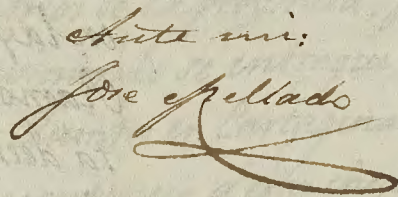 Ante mi:
Jose Mellado